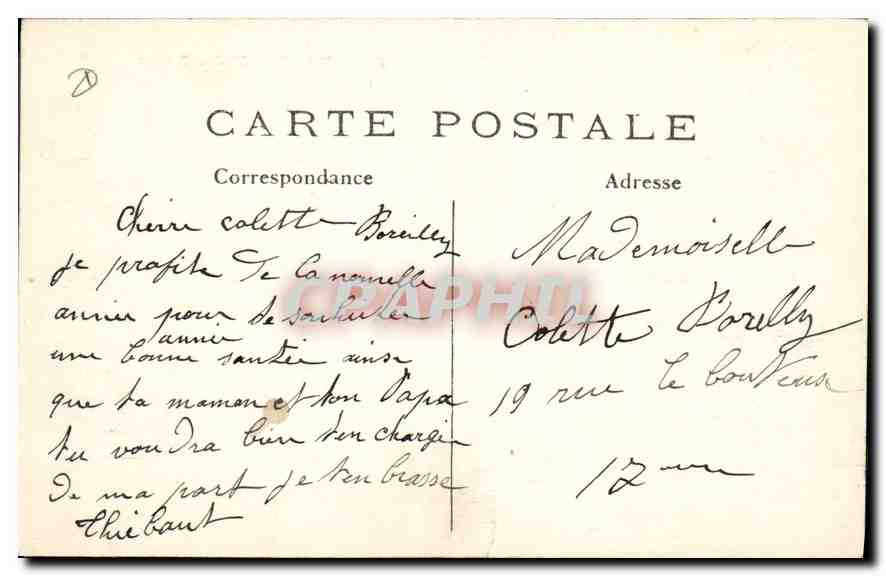 CARTE POSTALE
Correspondance
Adresse
Chèrre Colette Boreilly
je profite de la nouvelle
année pour te souhuter
une bonne année santée ainse
que ta maman et ton Papa
tu voudra bien t'en chargée
de ma part je t'en brasse
Thiebaut
Mademoiselle
Colette Borelly
19 rue le
17 eme
CPAPHIL